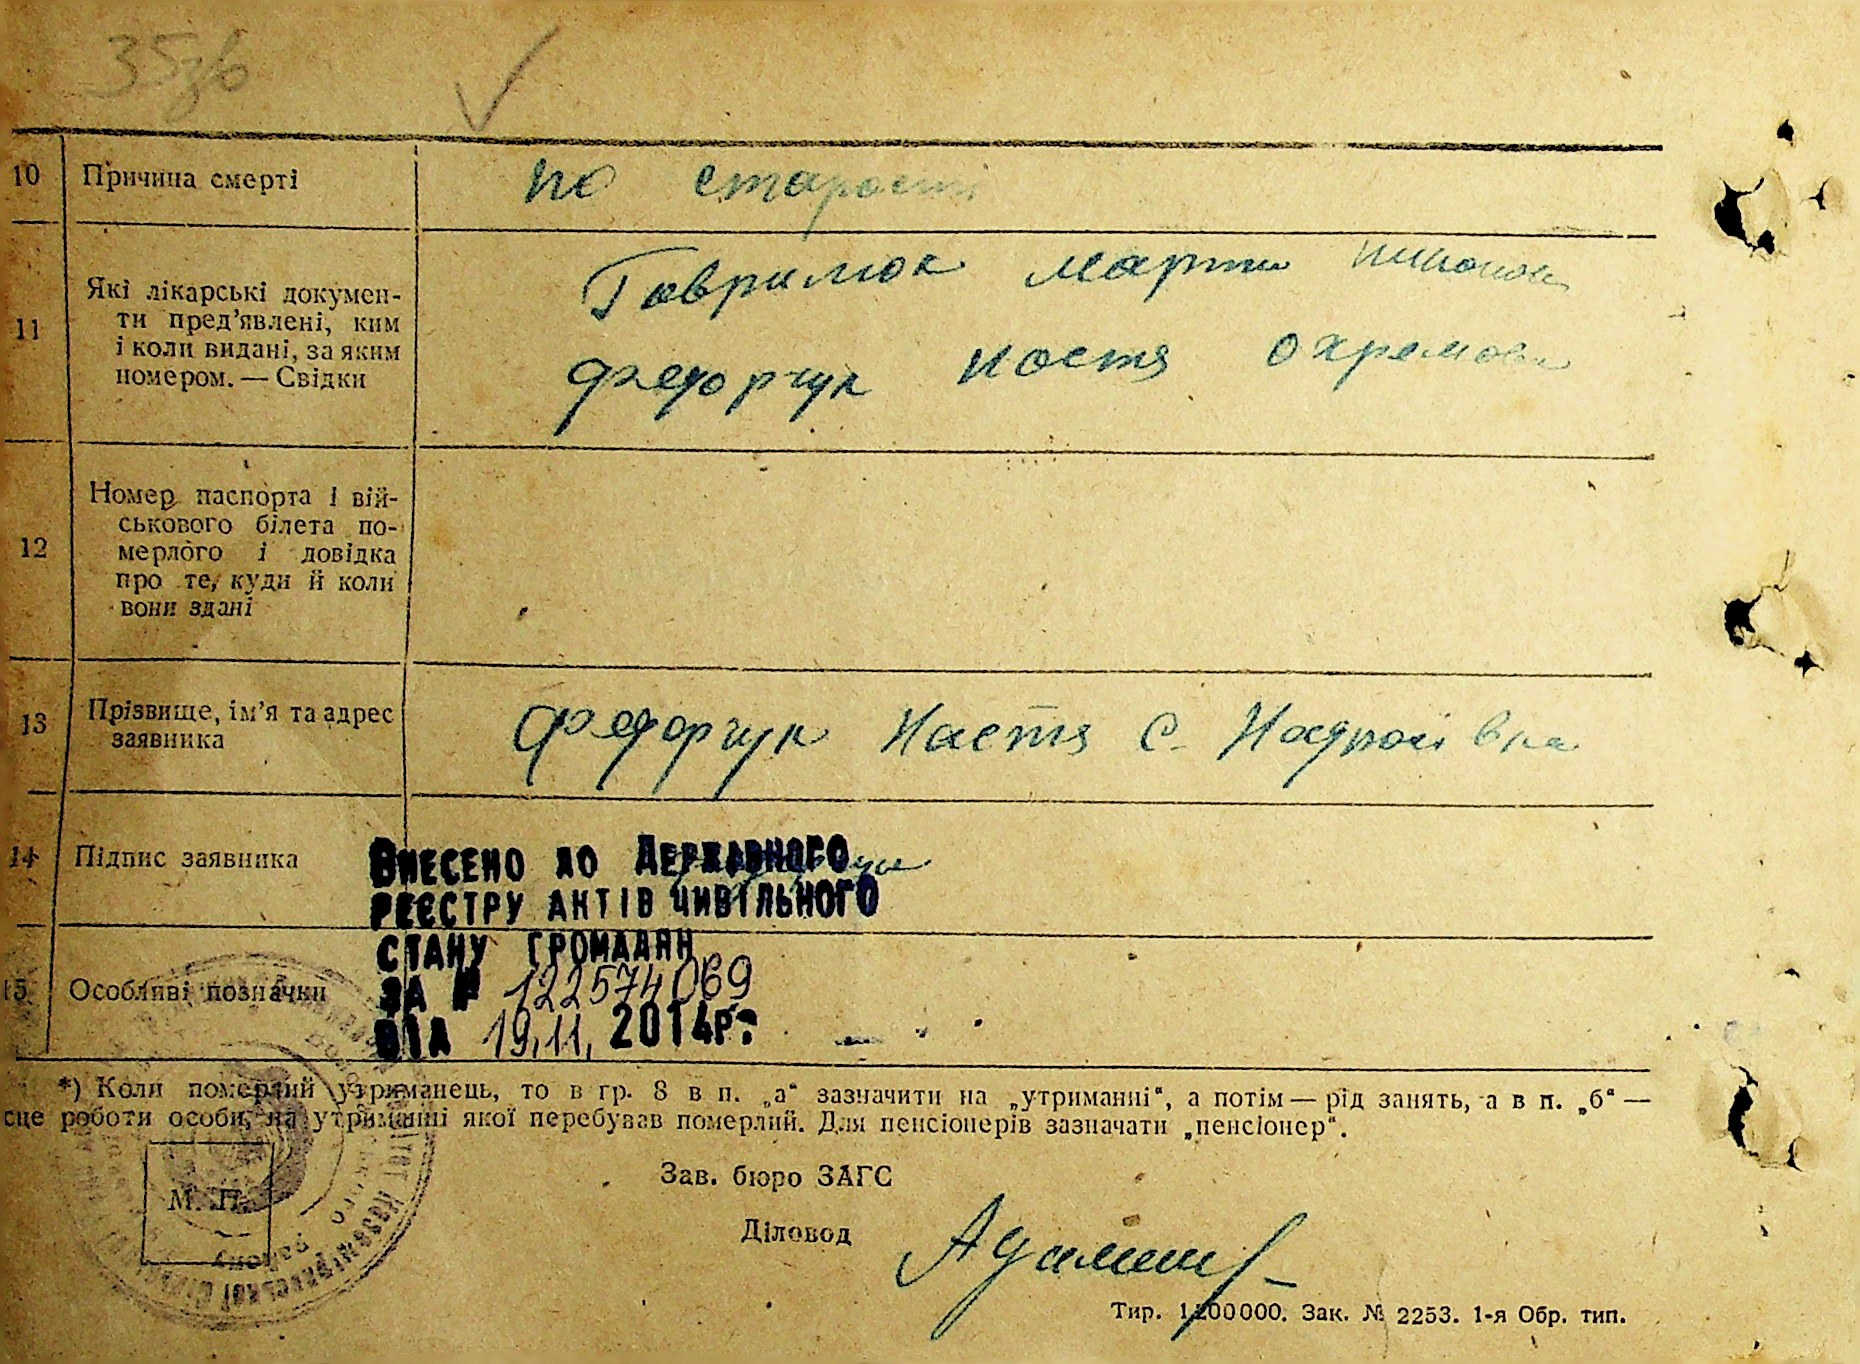 35зв
10 Причина смерті по старості
11 Які лікарські докумен-
ти пред'явлені, ким
і коли видані, за яким
номером. — Свідки
Гаврилюк Марти
Федорчук Настя Охремовн
12 Номер паспорта і вій-
ськового білета по-
мерлого і довідка
про те, куди й коли
вони здані
13 Прізвище, ім'я та адрес
заявника
Федорчук Настя с.
14 Підпис заявника
ВНЕСЕНО ДО ДЕРЖАВНОГО
РЕЄСТРУ АКТІВ ЦИВІЛЬНОГО
СТАНУ ГРОМАДЯН
ЗА № 122574069
ВІД 19.11. 2014р.
15 Особливі позначки
*) Коли померлий утриманець, то в гр. 8 в п. „а“ зазначити на „утриманні“, а потім — рід занять, а в п. „б“ —
сце роботи особи, на утриманні якої перебував померлий. Для пенсіонерів зазначати „пенсіонер“.
М. П.
району
Зав. бюро ЗАГС
Діловод
Тир. 1200000. Зак. № 2253. 1-я Обр. тип.